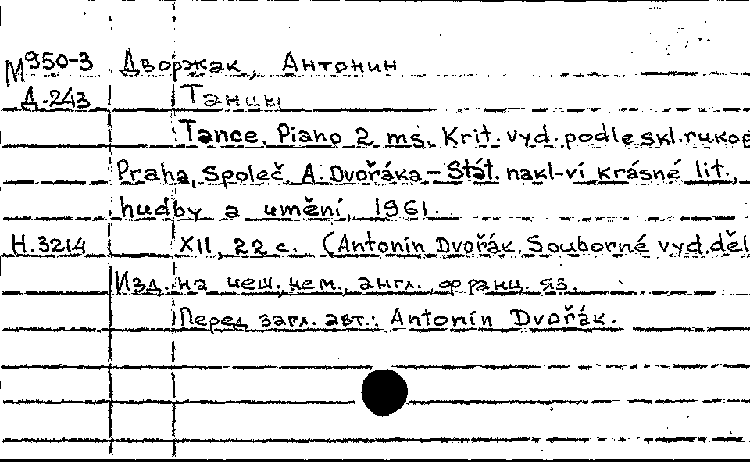 М950-3 Дворжак, Антонин
Д-243 Танцы
Tance. Piano 2 ms. Krit. vyd. podle skl. rukop
Praha, Společ. A. Dvořáka – Stát. nakl-ví krásné lit.,
hudby a umění, 1961.
Н.3214 XII, 22 с. (Antonín Dvořák. Souborné vyd. děl
Изд. на чеш., нем., англ., франц. яз.
Перед загл. авт.: Antonín Dvořák.